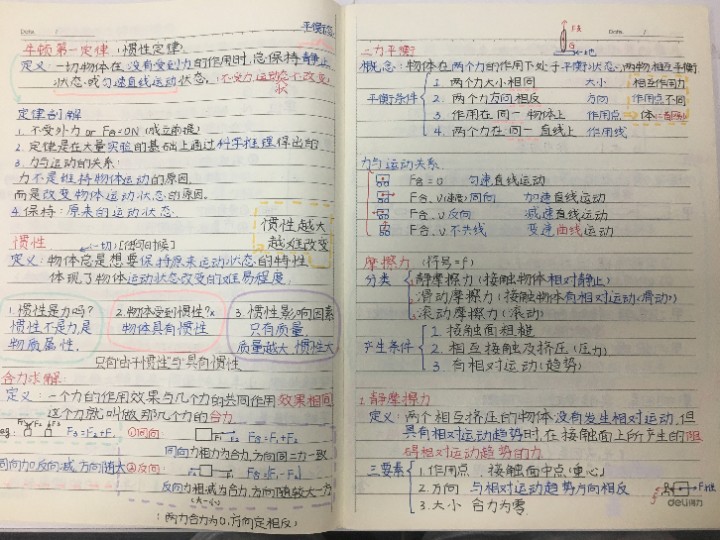 Date
牛顿第一定律（惯性定律）
定义：一切物体在没有受到力的作用时，总保持静止
状态或匀速直线运动状态。（不受力，运动状态不改变）
定律剖解
1. 不受外力 or F合=0N（成立前提）
2. 定律是在大量实验的基础上通过科学推理得出的
3. 力与运动的关系：
力不是维持物体运动的原因
而是改变物体运动状态的原因。
4. 保持：原来的运动状态
惯性越大
越难改变
惯性
一切[任何时候]
定义：物体总是想要保持原来运动状态的特性
体现了物体运动状态改变的难易程度。
1. 惯性是力吗？
惯性不是力是
物质属性。
2. 物体受到惯性？×
物体具有惯性
3. 惯性影响因素
只有质量
质量越大 惯性大
只有"由于惯性"与"具有惯性"
合力求解
定义：一个力的作用效果与几个力的共同作用效果相同
这个力就叫做那几个力的合力
eg:
①同向：
F合=F₁+F₂
同向力相加为合力，方向同二力一致
②反向：
反向力相减为合力，方向随较大一方
（两力合力为0，方向定相反）
Date
二力平衡
概念：物体在两个力的作用下处于平衡状态，两物相互平衡
平衡条件
1. 两个力大小相同 大小
2. 两个力方向相反 方向
3. 作用在同一物体上 作用点
4. 两个力在同一直线上 作用线
相互作用力
作用点不同
力与运动关系
F合=0 匀速直线运动
F合、V(速度)同向 加速直线运动
F合、V反向 减速直线运动
F合、V不共线 变速曲线运动
摩擦力（符号=f）
分类
静摩擦力（接触物体相对静止）
滑动摩擦力（接触物体有相对运动（滑动））
滚动摩擦力（滚动）
产生条件
1. 接触面粗糙
2. 相互接触及挤压（压力）
3. 有相对运动（趋势）
1. 静摩擦力
定义：两个相互挤压的物体没有发生相对运动，但
具有相对运动趋势时，在接触面上所产生的阻
碍相对运动趋势的力
三要素
1. 作用点 接触面中点（重心）
2. 方向 与相对运动趋势方向相反
3. 大小 合力为零
deli得力